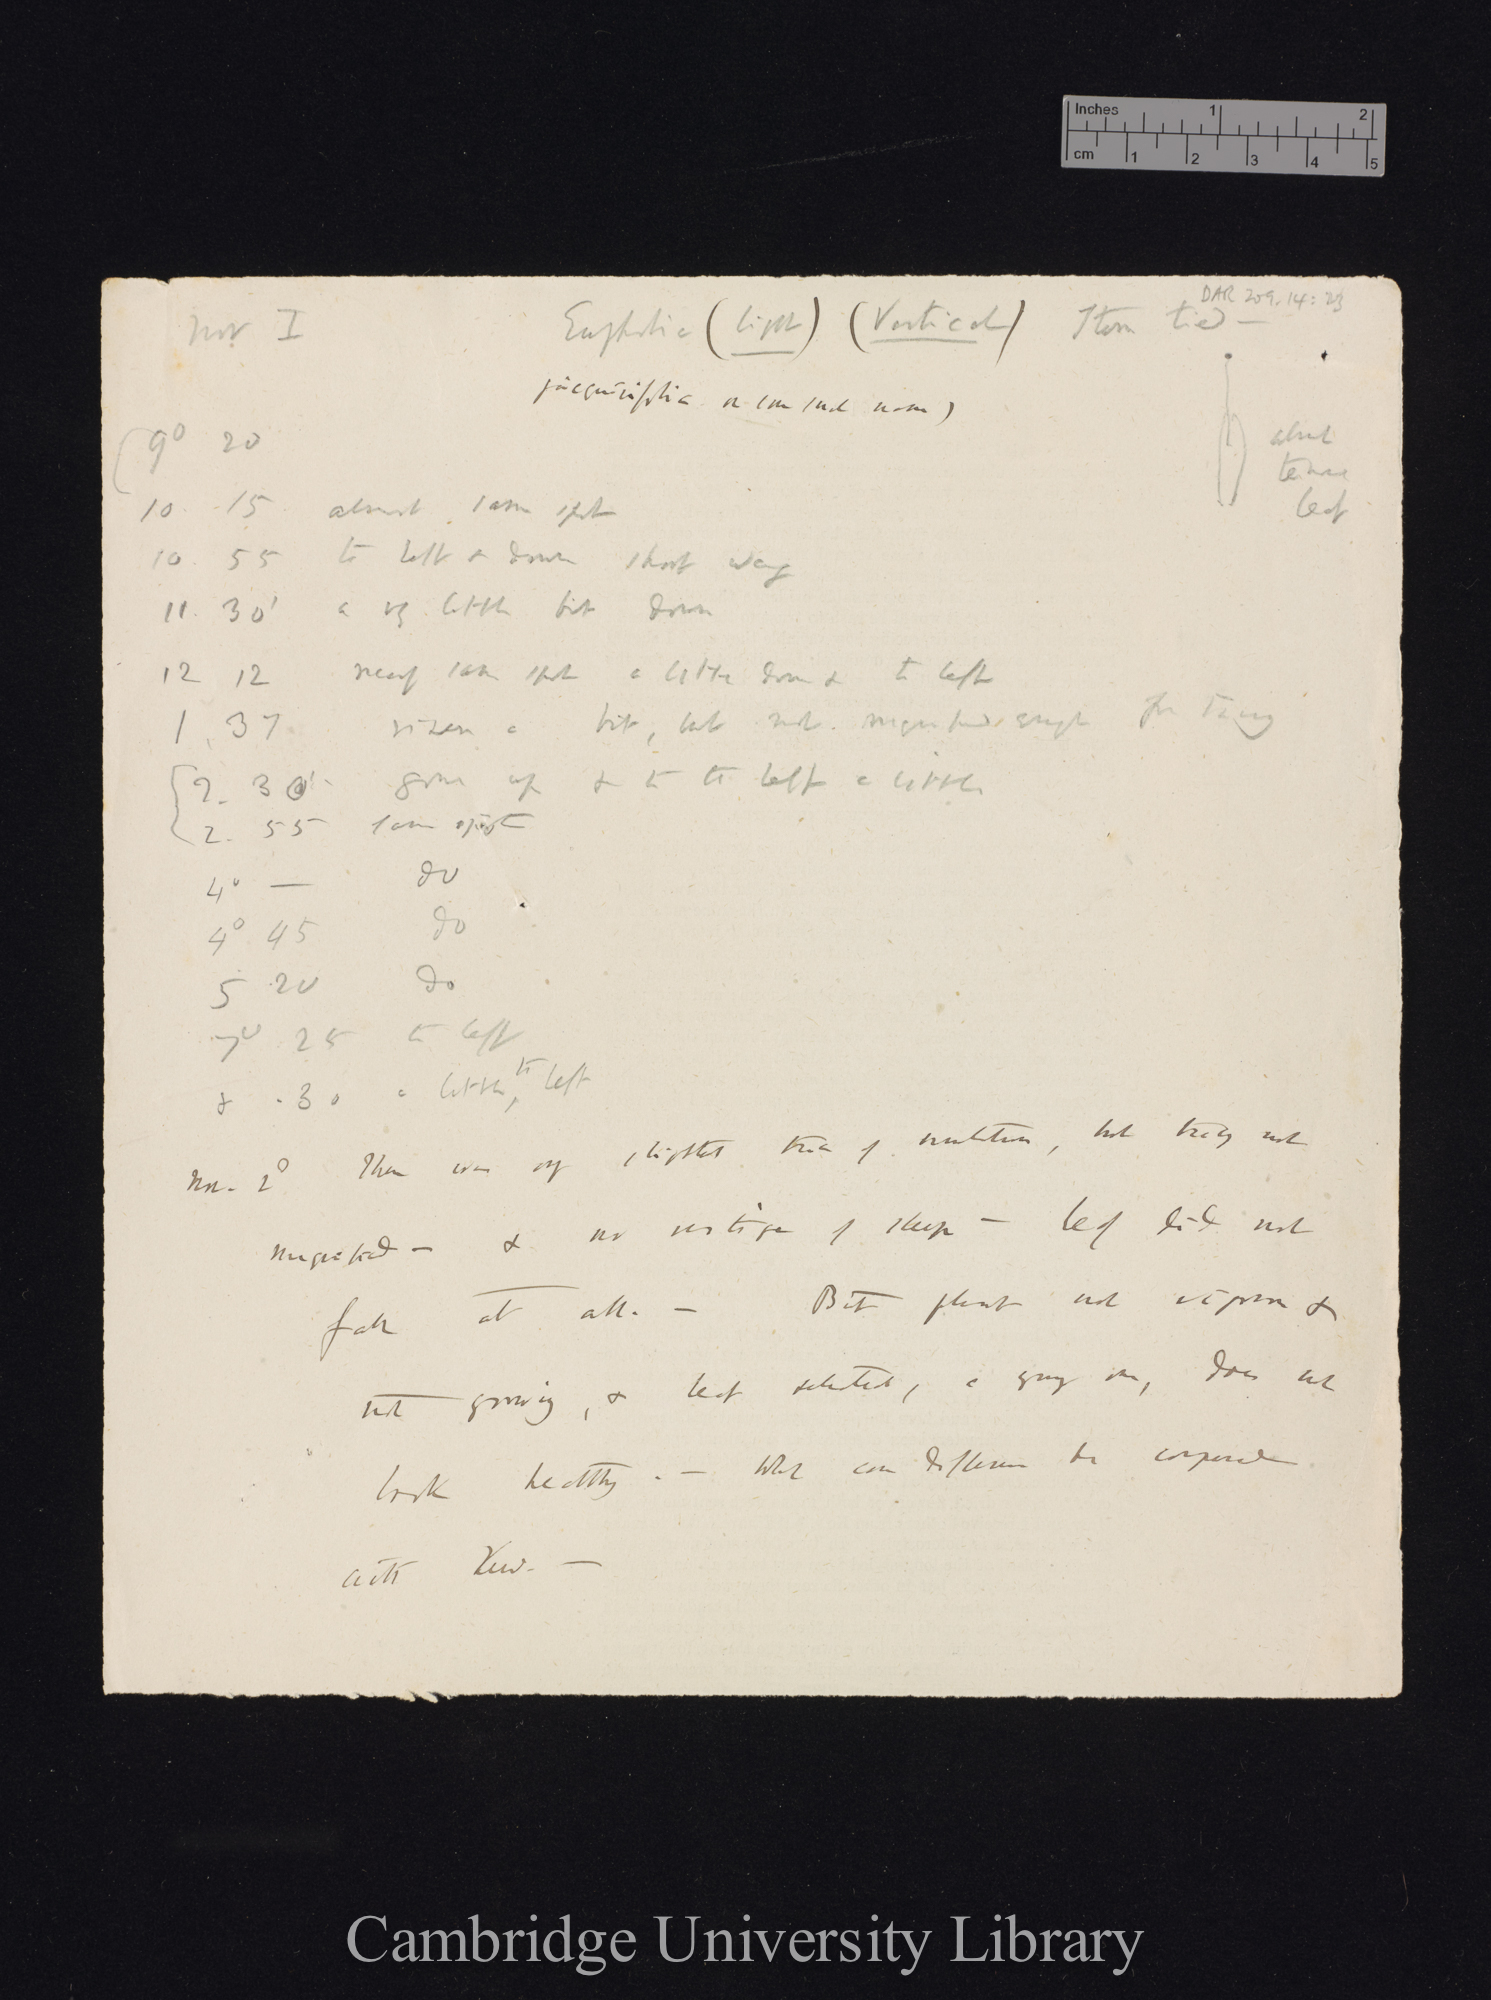 Inches 1 2
cm 1 2 3 4 5
DAR 209.14: 23
Nov I Euphorbia (light) (Vertical) Stem tied —
jacquiniflia or some such name)
9° 20
about
leaf
10. 15 almost same spot
10 55 to left & down short way
11. 30' a vy little bit down
12 12 nearly same spot a little down & to left
1. 37 risen a bit, but not magnified enough for
2. 30' gone up & to the left a little
2. 55 same spot
4° — do
4° 45 do
5 20 do
7° 25 to left
8 . 30 a little, to left
Nov. 2° There was vy slightest trace of nutation, but tracing not
magnified — & no vestige of sleep — leaf did not
fall at all. — But plant not vigorous &
not growing, & leaf selected, a young one, does not
look healthy. — What can difference be compared
with Kew. —
Cambridge University Library